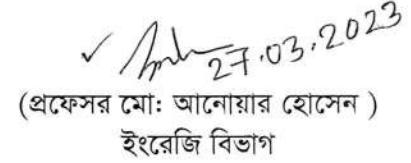 27.03.2023
(প্রফেসর মো: আনোয়ার হোসেন )
ইংরেজি বিভাগ